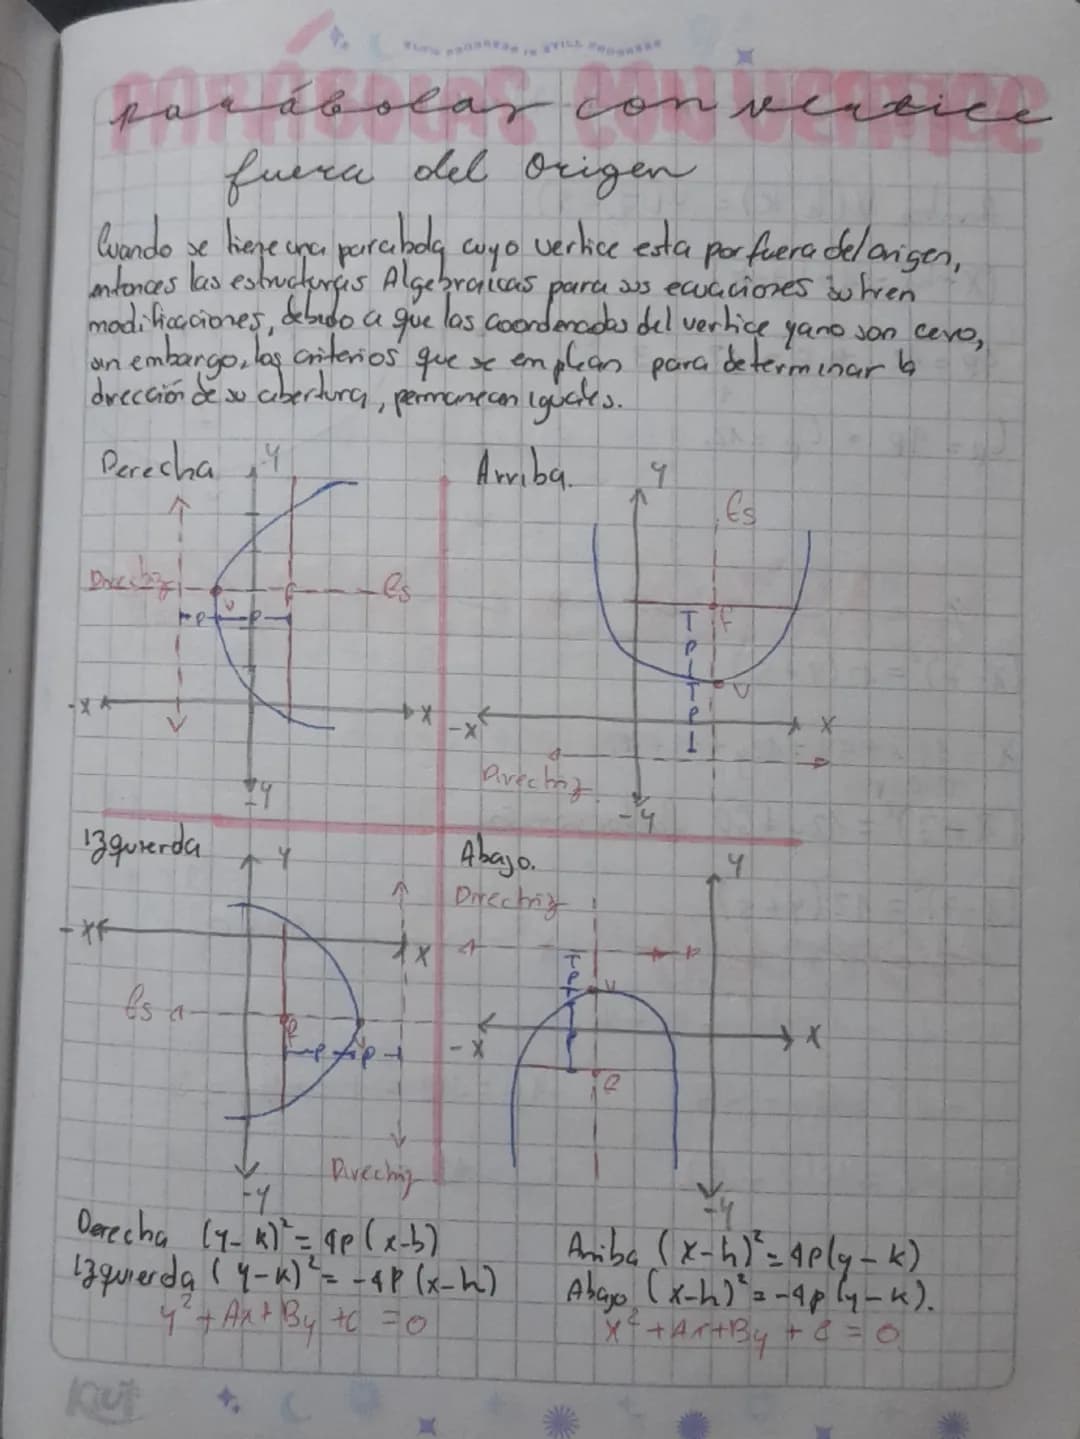 SLOW PROGRESS IS STILL PROGRESS
parábolas con vertice
fuera del Origen
Cuando se tiene una parabola cuyo vertice esta por fuera del origen,
entonces las estructuras Algebraicas para sus ecuaciones sufren
modificaciones, debido a que las coordenadas del vertice ya no son cero,
sin embargo, los criterios que se emplean para determinar la
dirección de su abertura, permanecen iguales.
Derecha
Y
Directriz
V
F
Es
P
P
-X
X
-Y
Arriba.
Y
Es
F
P
V
P
-X
X
Directriz
-Y
Izquierda
Y
-X
X
Es
F
V
P
P
Directriz
-Y
Abajo.
Directriz
Y
P
V
P
-X
X
F
-Y
Derecha (y-k)²=4p(x-h)
Izquierda (y-k)²=-4P(x-h)
y²+Ax+By+C=0
Arriba (x-h)²=4p(y-k)
Abajo (x-h)²=-4p(y-k).
x²+Ax+By+C=0